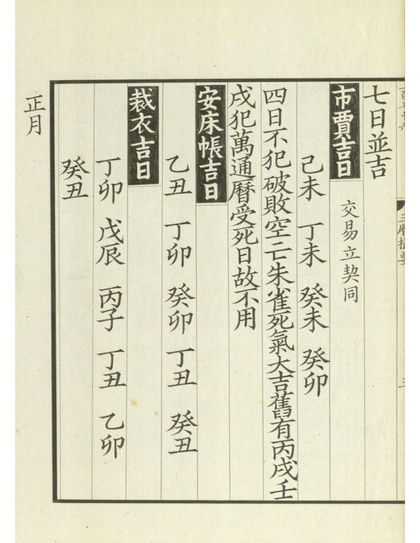 七日並吉
市賈吉日
交易立契同
己未 丁未 癸未 癸卯
四日不犯破敗空亡朱雀死氣大吉舊有丙戌壬
戌犯萬通曆受死日故不用
安床帳吉日
乙丑 丁卯 癸卯 丁丑 癸丑
裁衣吉日
丁卯 戊辰 丙子 丁丑 乙卯
癸丑
正月